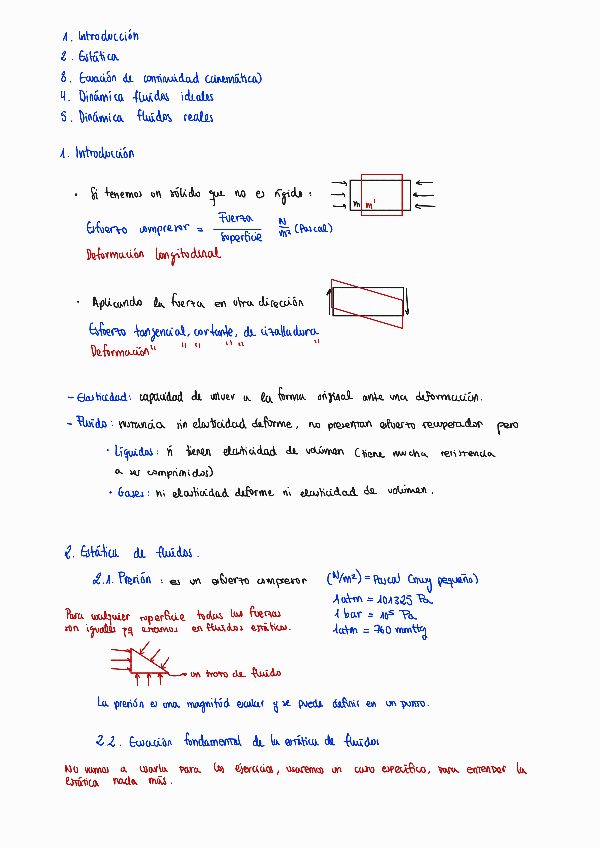 1. Introducción
2. Estática
3. Ecuación de continuidad (cinemática)
4. Dinámica fluidos ideales
5. Dinámica fluidos reales
1. Introducción
· Si tenemos un sólido que no es rígido:
m m'
Esfuerzo compresor = Fuerza / Superficie N/m² (Pascal)
Deformación longitudinal
· Aplicando la fuerza en otra dirección
Esfuerzo tangencial, cortante, de cizalladura
Deformación " " " " " "
- Elasticidad: capacidad de volver a la forma original ante una deformación.
- Fluido: sustancia sin elasticidad deforme, no presentan esfuerzo recuperador pero
· Líquidos: si tienen elasticidad de volúmen (tiene mucha resistencia
a ser comprimidos)
· Gases: ni elasticidad deforme ni elasticidad de volúmen.
2. Estática de fluidos.
2.1. Presión: es un esfuerzo compresor (N/m²) = Pascal (muy pequeño)
1 atm = 101325 Pa
1 bar = 10⁵ Pa
1 atm = 760 mmHg
Para cualquier superficie todas las fuerzas
son iguales pq estamos en fluidos estáticos.
un trozo de fluido
La presión es una magnitúd escalar y se puede definir en un punto.
2.2. Ecuación fundamental de la estática de fluidos
No vamos a usarla para los ejercicios, usaremos un caso específico, para entender la
estática nada más.